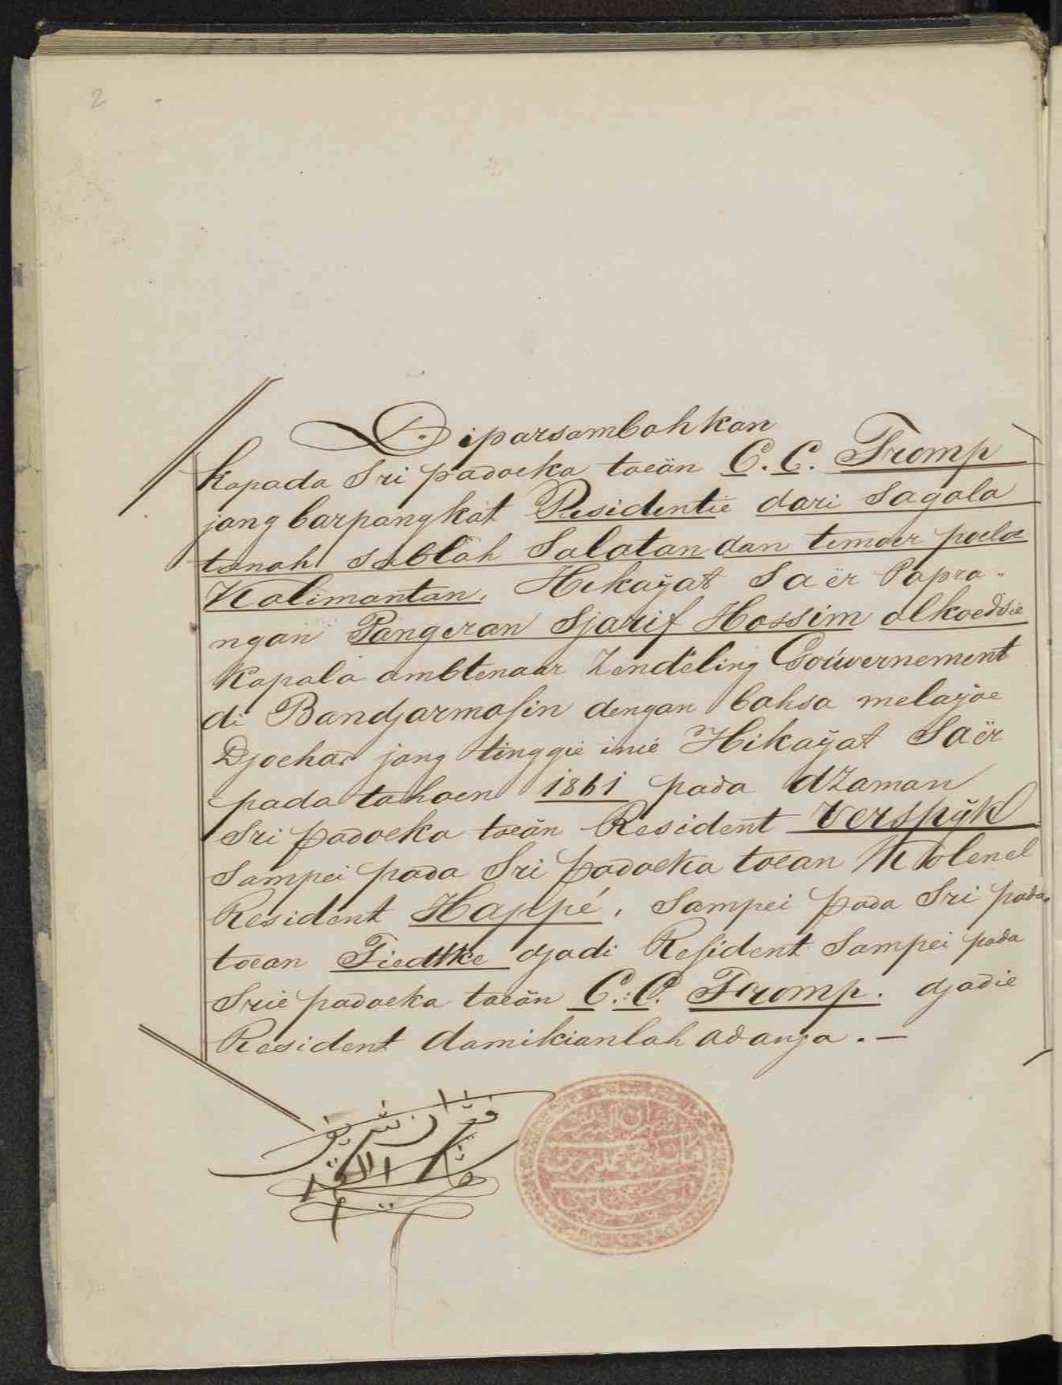 2
Diparsambahkan
kapada Sri padoeka toeän C. C. Tromp
jang barpangkat Residentie dari Sagala
tanah sablah Salatan dan timoer poeloe
Kalimantan, Hikaÿat Saër Papra-
ngan Pangeran Sjarif Hassim alkoedsie
Kapala ambtenaar Zendeling Goúwernement
di Bandjarmasin dengan bahsa melajoe
Djoehar jang tinggie inie Hikaÿat Saër
pada tahoen 1861 pada dzaman
Sri padoeka toeän Resident Verspÿk
Sampei pada Sri padoeka toean Kolenel
Resident Happé, Sampei pada Sri pada
toean Tiedtke djadi Resident Sampei pada
Srie padoeka toeän C. C. Tromp. djadie
Resident damikianlah adanja. —